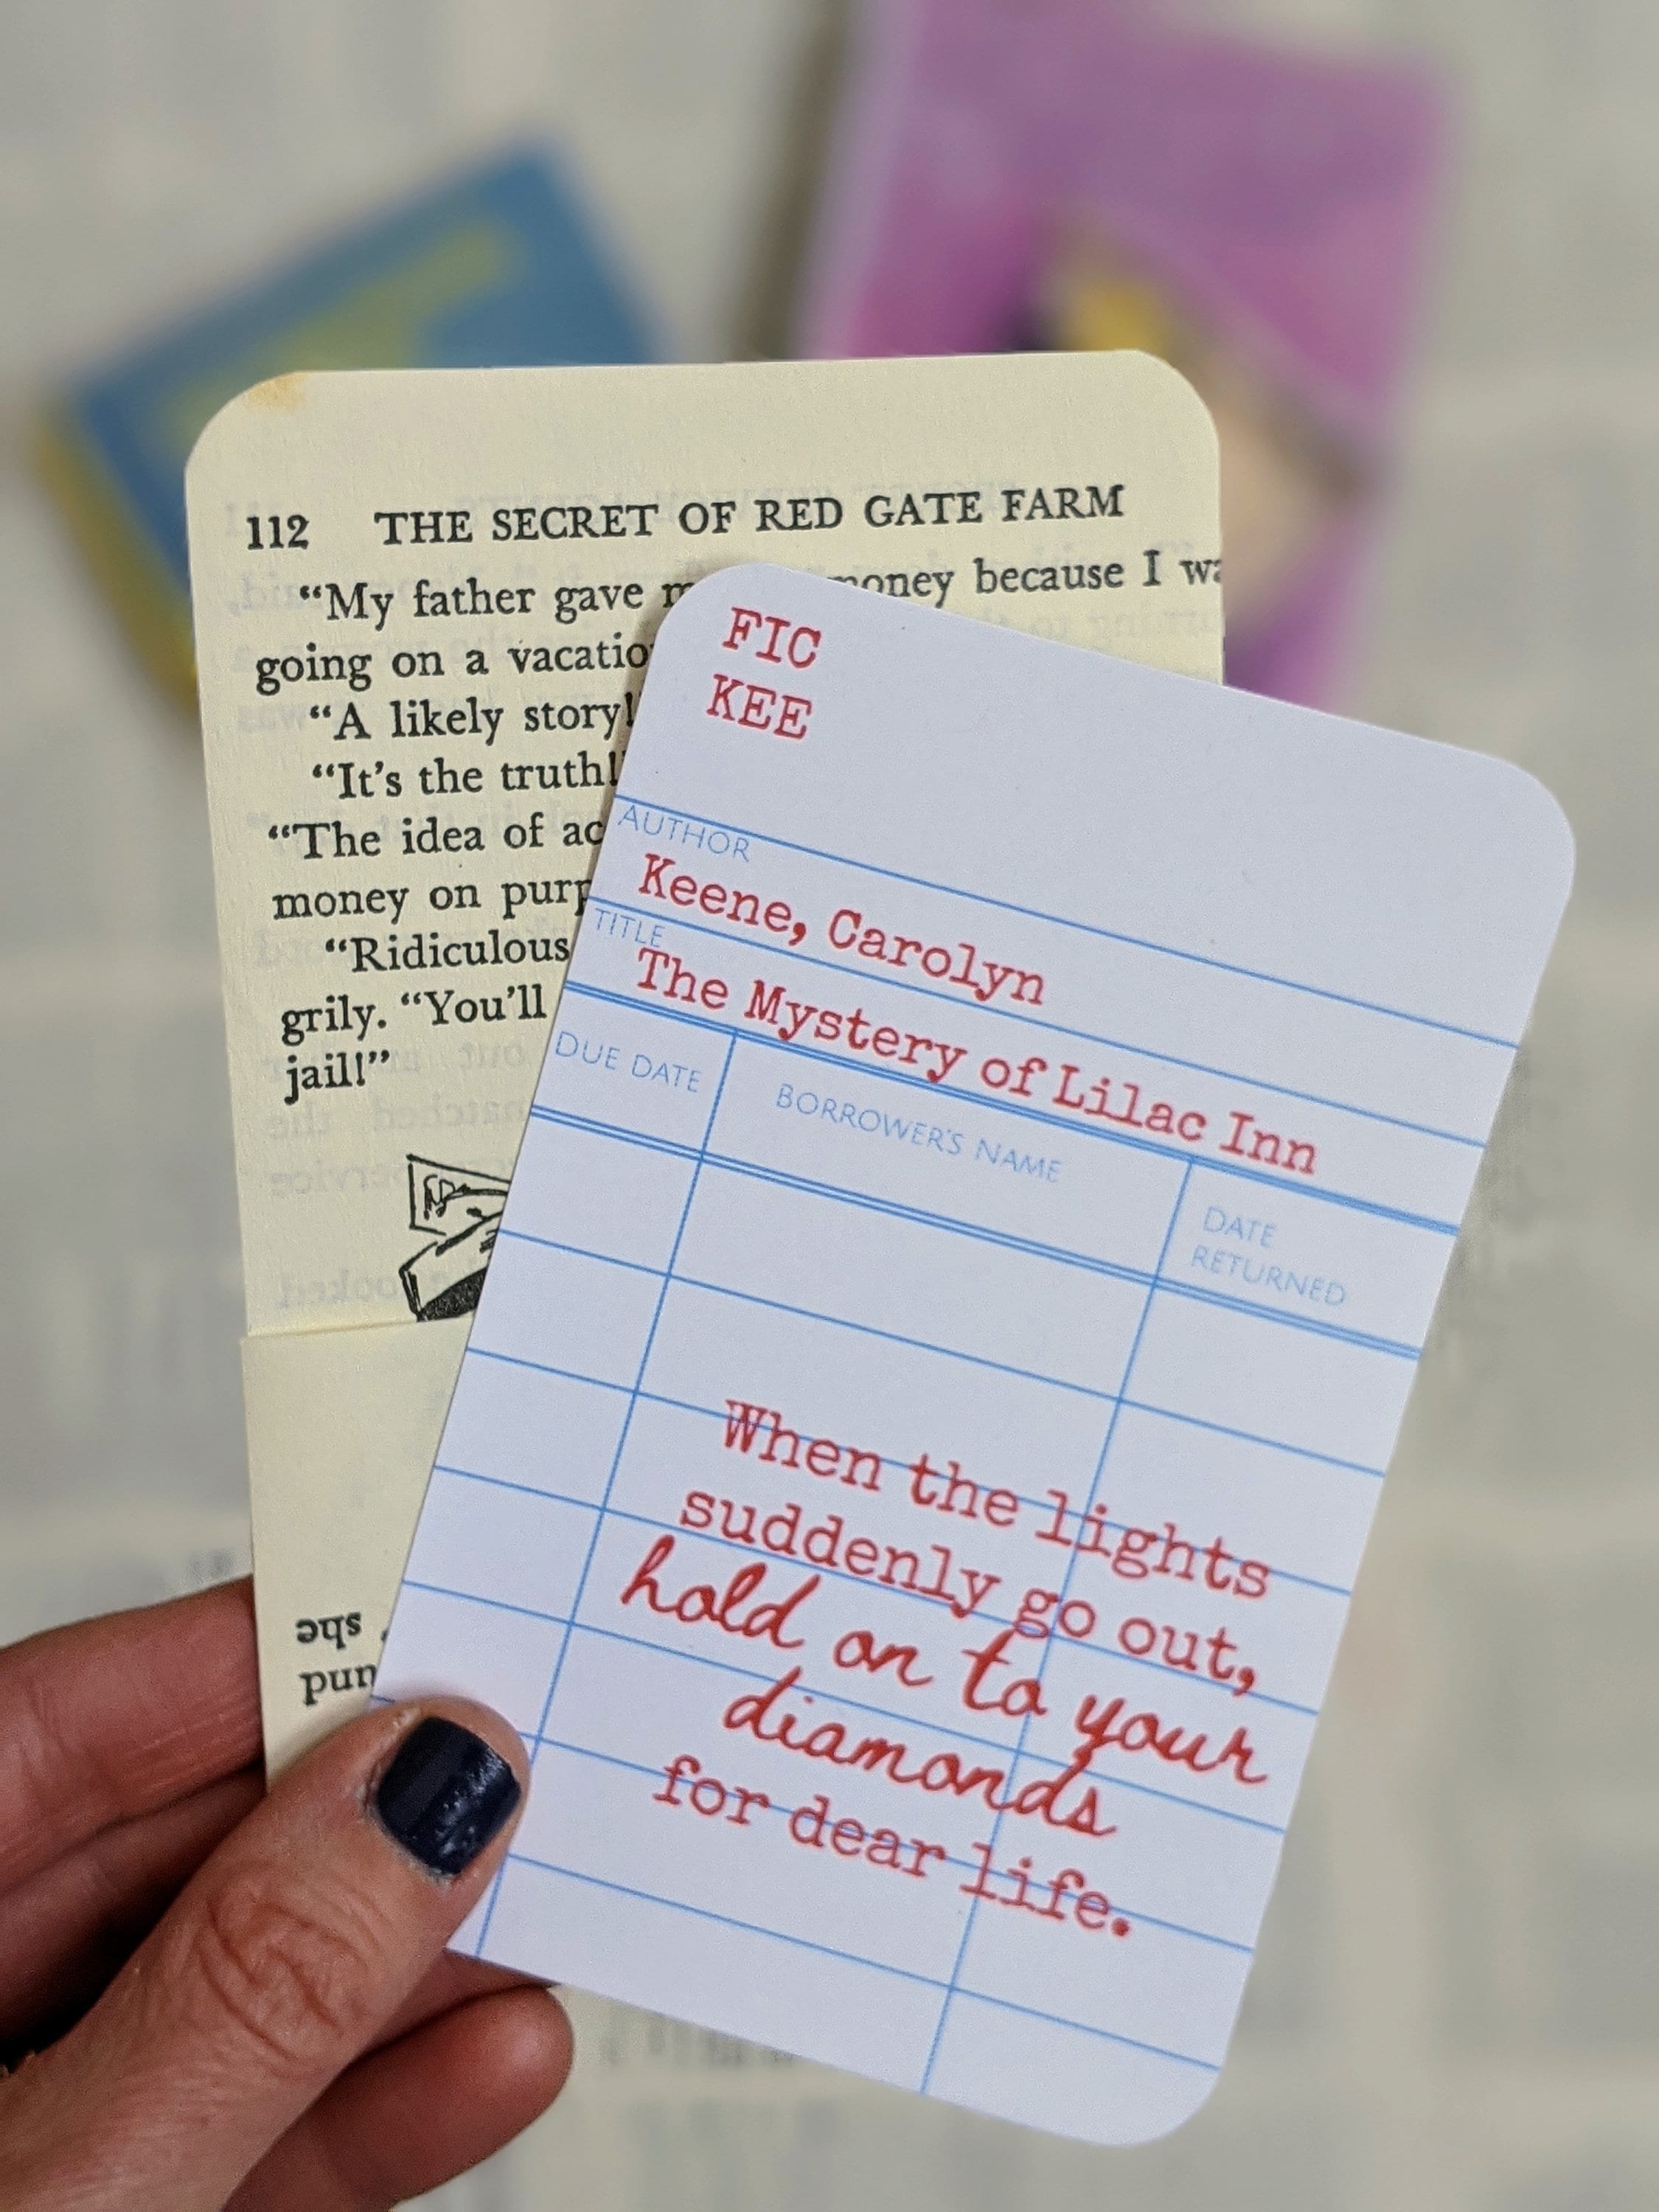 112 THE SECRET OF RED GATE FARM
“My father gave money because I
going on a
“A likely story!
“It’s the truth!
“The idea of
money on
“Ridiculous
grily. “You’ll
jail!”
she
FIC
KEE
AUTHOR
Keene, Carolyn
TITLE
The Mystery of Lilac Inn
DUE DATE
BORROWER'S NAME
DATE
RETURNED
When the lights
suddenly go out,
hold on to your
diamonds
for dear life.